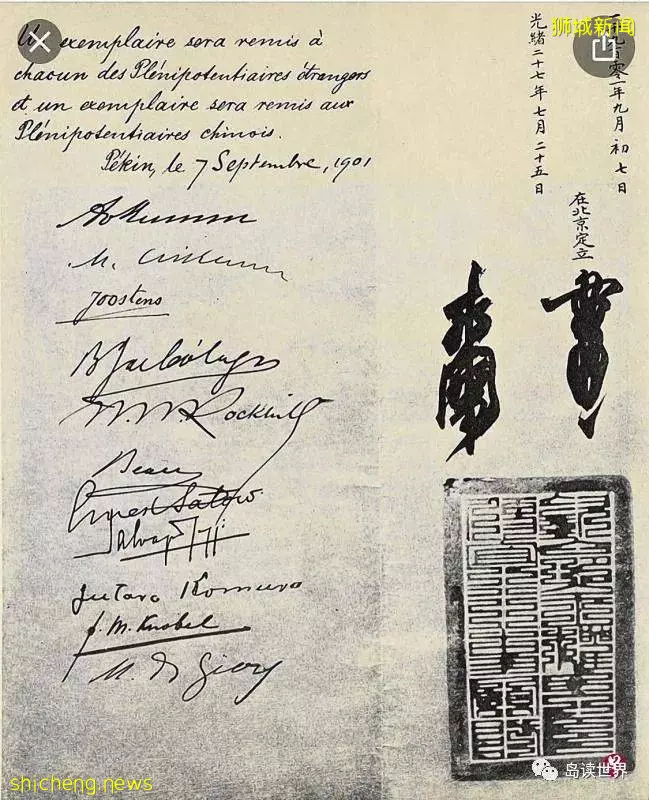 狮城新闻
exemplaire sera remis à
chacun des Plénipotentiaires étrangers
et un exemplaire sera remis aux
Plénipotentiaires chinois.
Pékin, le 7 Septembre, 1901
Joostens
B J de Cólogan
W. W. Rockhill
Beau
Ernest Satow
Salvago Raggi
Jutaro Komura
F. M. Knobel
M. de Giers
一千九百零一年九月初七日
光緒二十七年七月二十五日
在北京定立
shicheng.news
岛读世界